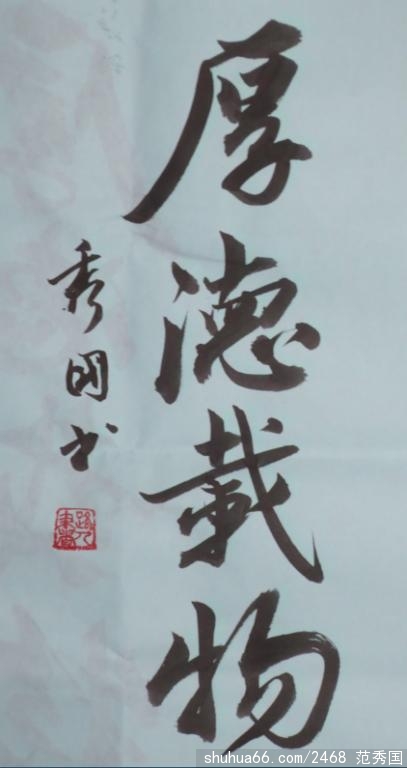 厚德载物
秀国书
shuhua66.com/2468 范秀国